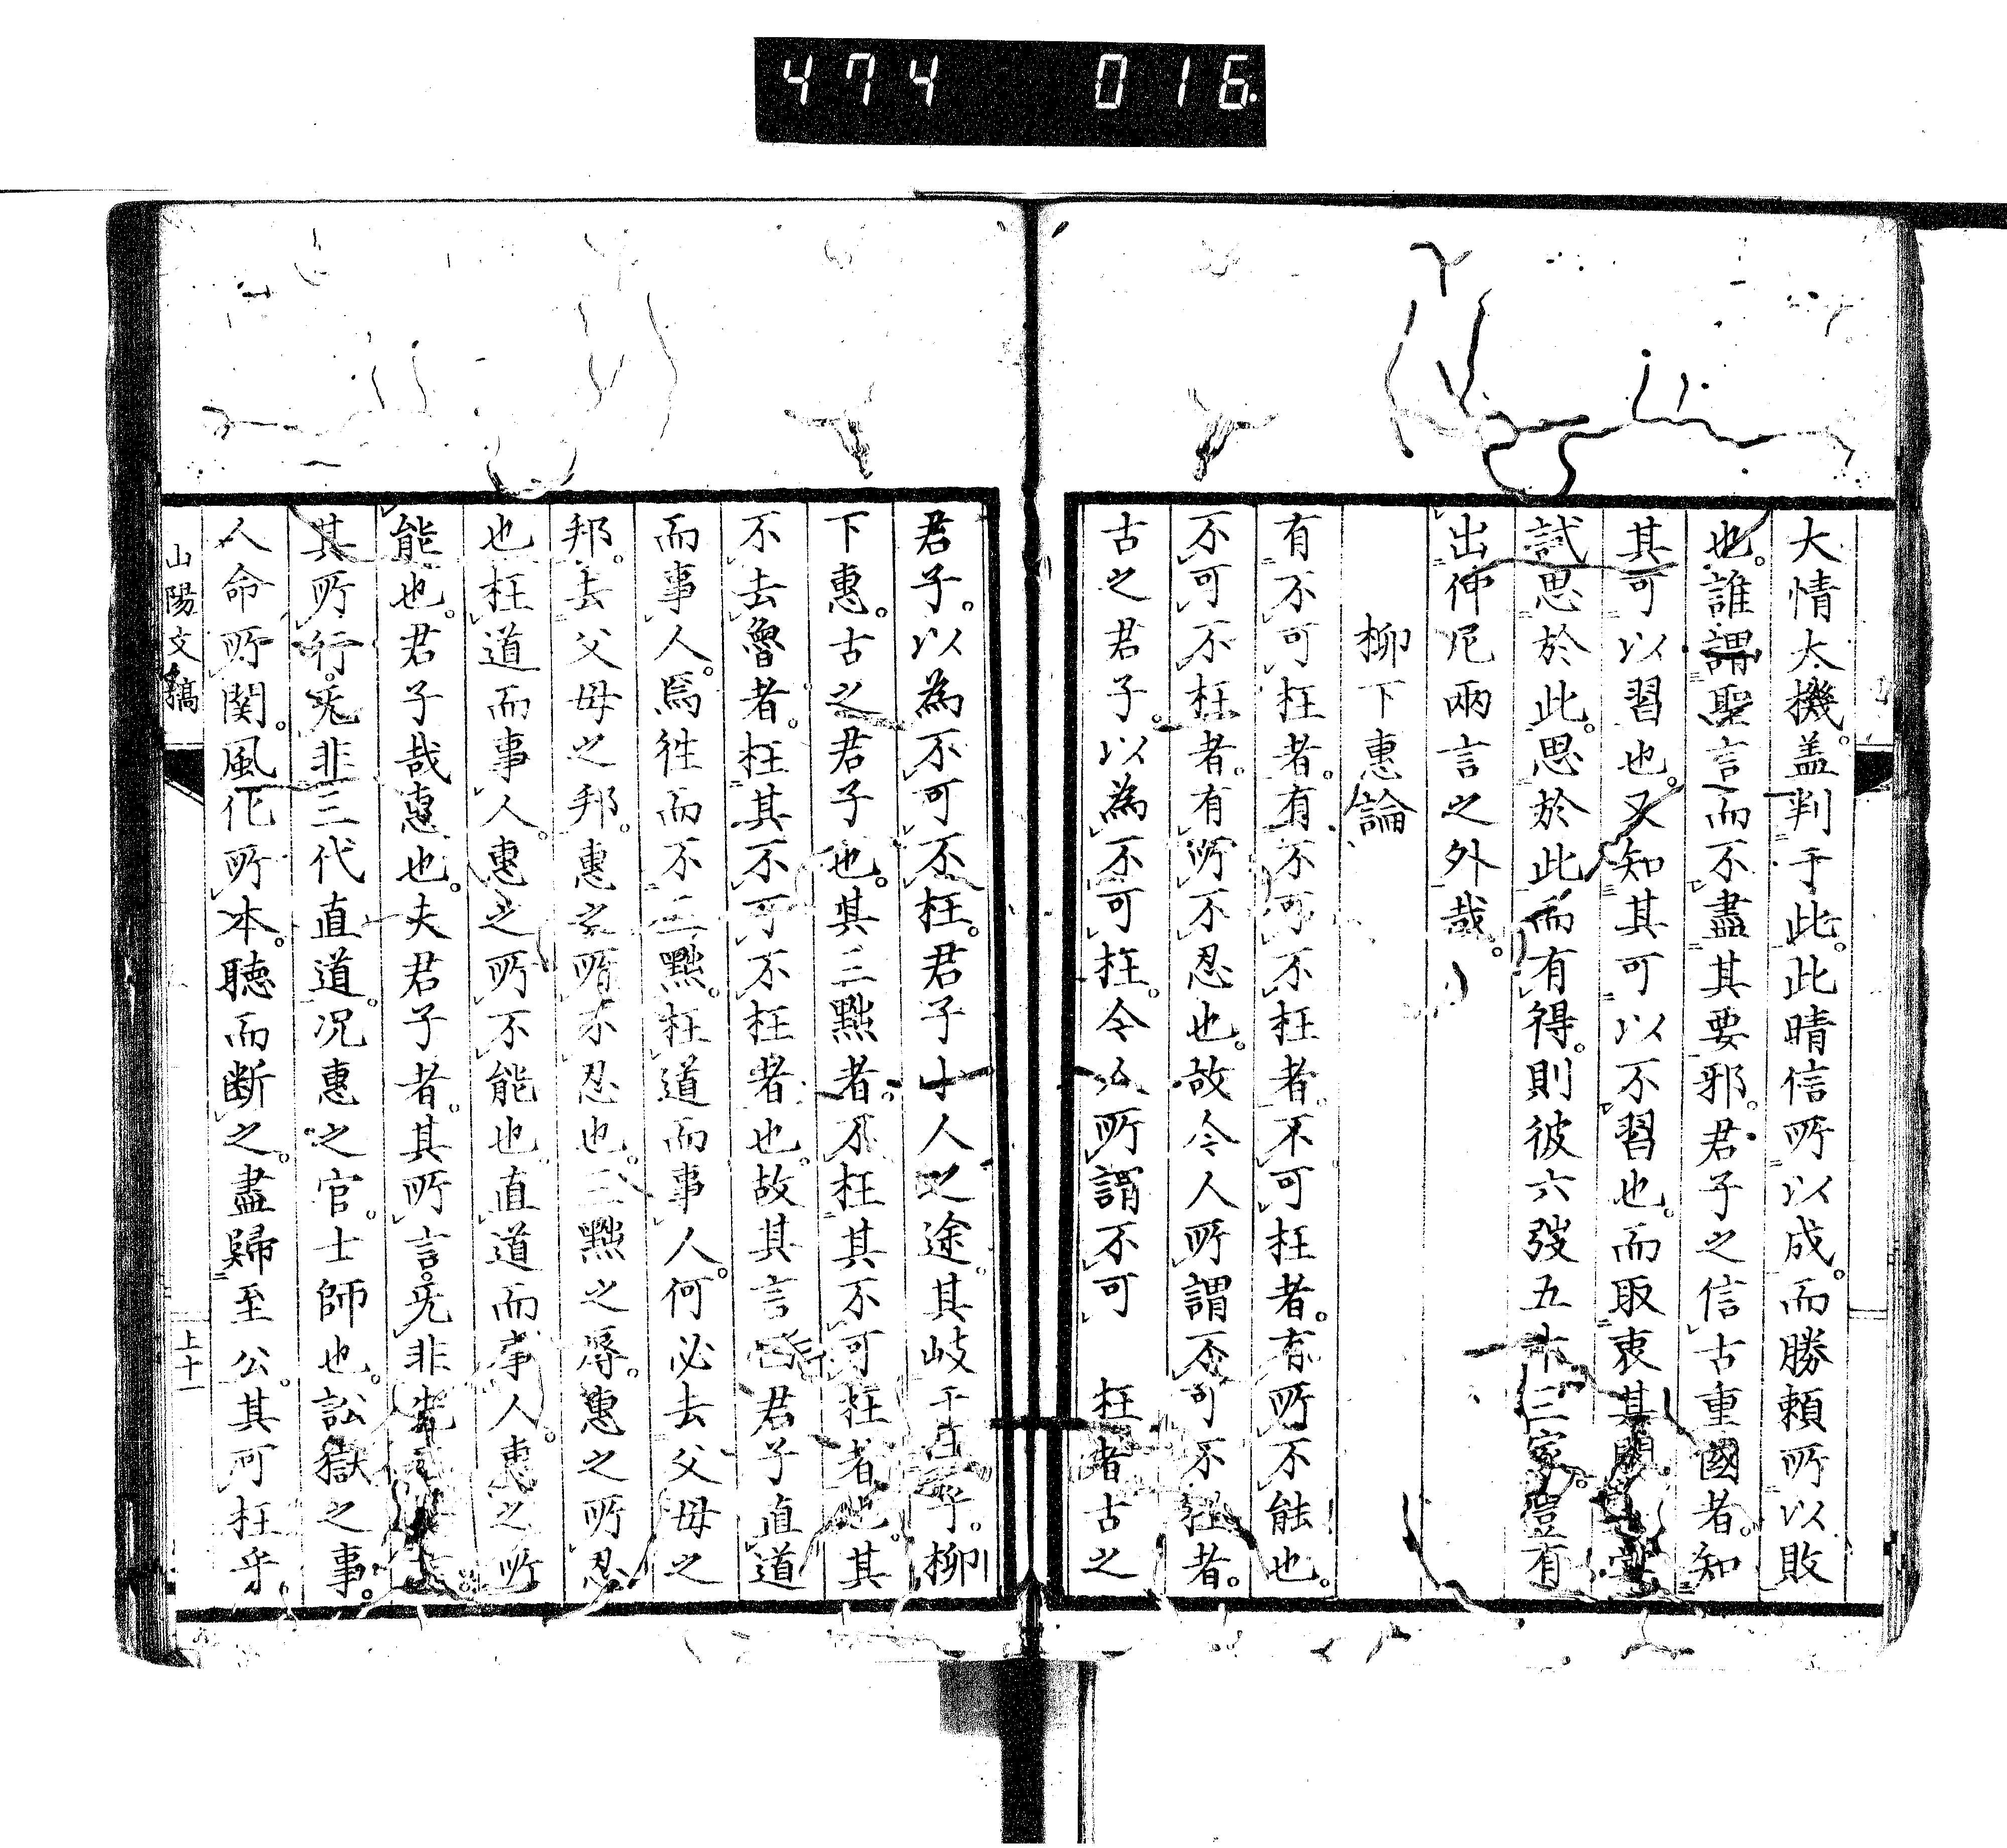 474 016
大情大機。盖判于此。此晴信所以成。而勝頼所以敗
也。誰謂聖言而不盡其要邪。君子之信古重國者。知
其可以習也。又知其可以不習也。而取衷其間
試思於此。思於此而有得。則彼六弢五十三家。豈有
出仲尼兩言之外哉。
柳下惠論
有不可枉者。有不可不枉者。不可枉者。有所不能也。
不可不枉者。有所不忍也。故今人所謂不可不枉者。
古之君子。以為不可枉。今人所謂不可枉者古之
君子。以為不可不枉。君子小人之途。其岐于在乎。柳
下惠。古之君子也。其三黜者。不枉其不可枉者也。其
不去魯者。枉其不可不枉者也。故其言曰君子直道
而事人。焉徃而不三黜。枉道而事人。何必去父母之
邦。去父母之邦。惠之所不忍也。三黜之辱。惠之所忍
也枉道而事人。惠之所不能也。直道而事人。惠之所
能也。君子哉惠也。夫君子者。其所言。旡非
其所行。旡非三代直道。况惠之官。士師也。訟獄之事。
人命所関。風化所本。聽而断之。盡歸至公。其可枉乎。
山陽文稿
上十一